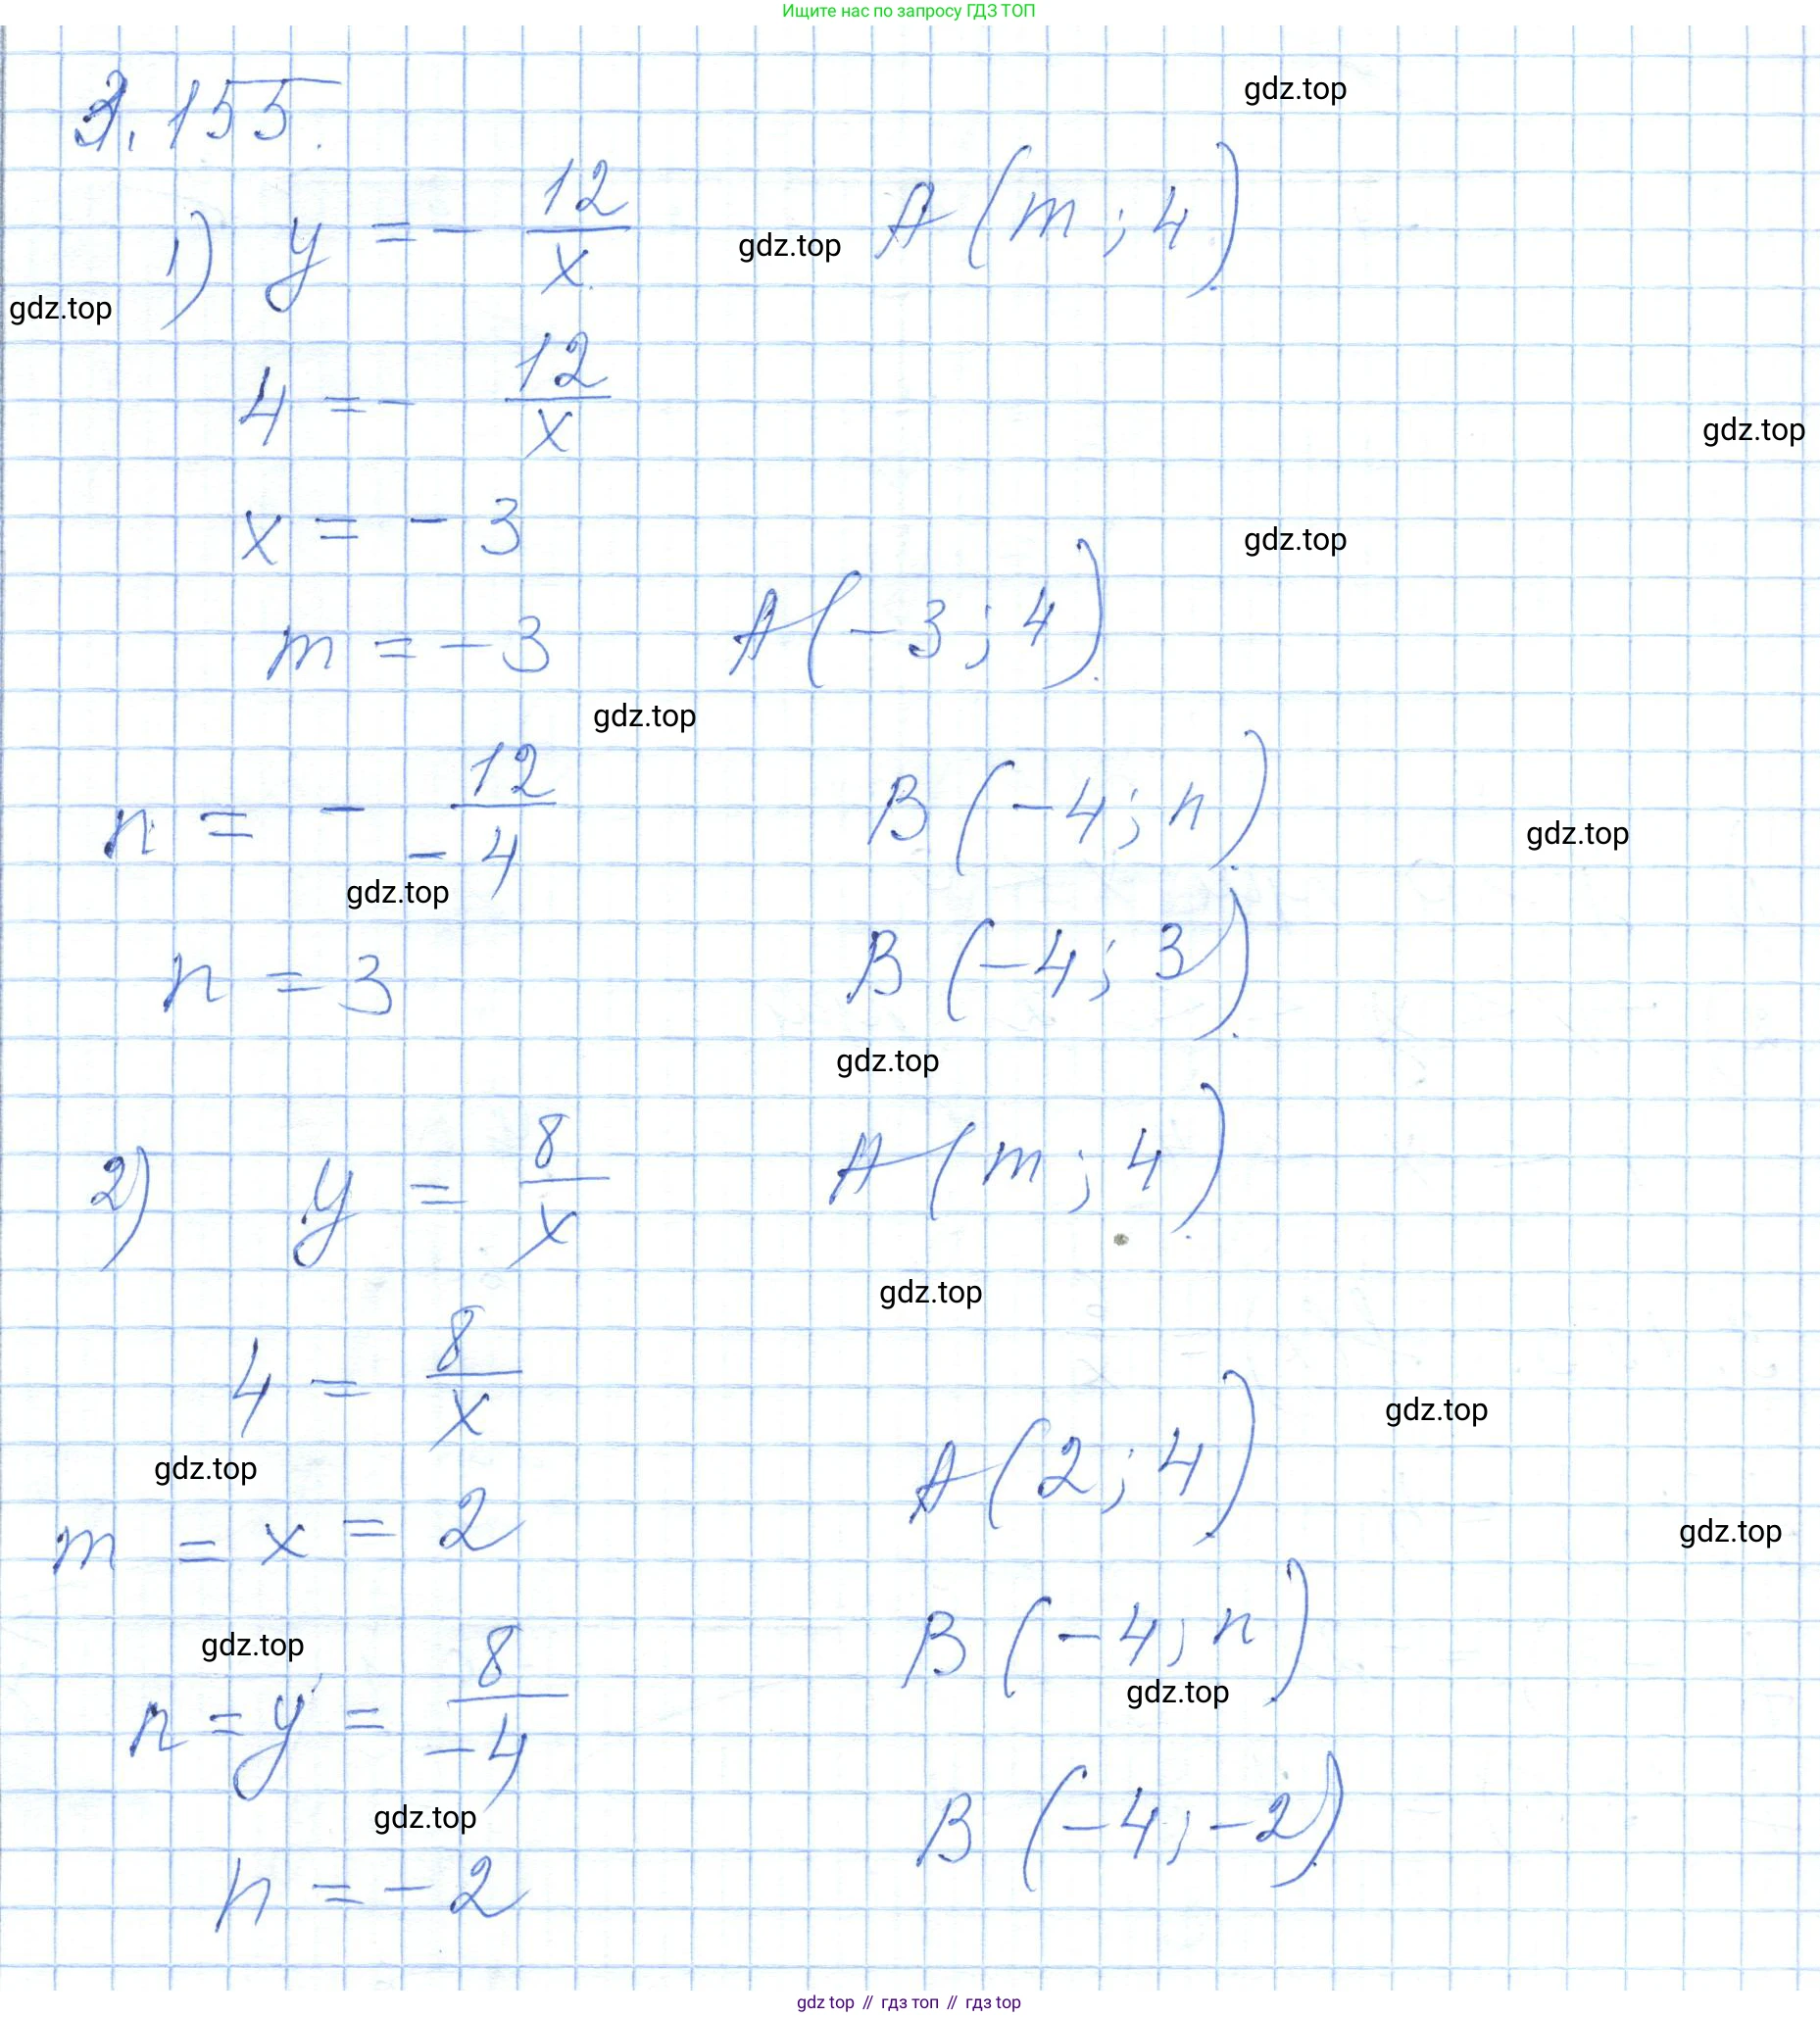 Ищите нас по запросу ГДЗ ТОП
gdz.top
3.155.
1) y = - 12/x    A(m; 4)
gdz.top
gdz.top
4 = - 12/x
gdz.top
x = - 3
gdz.top
m = - 3    A(-3; 4)
gdz.top
n = - 12/-4    B(-4; n)
gdz.top
gdz.top
n = 3    B(-4; 3)
gdz.top
2) y = 8/x    A(m; 4)
gdz.top
4 = 8/x
gdz.top
A(2; 4)
gdz.top
m = x = 2
gdz.top
B(-4; n)
gdz.top
n = y = 8/-4
gdz.top
gdz.top
B(-4; -2)
n = - 2
gdz top // гдз топ // гдз top